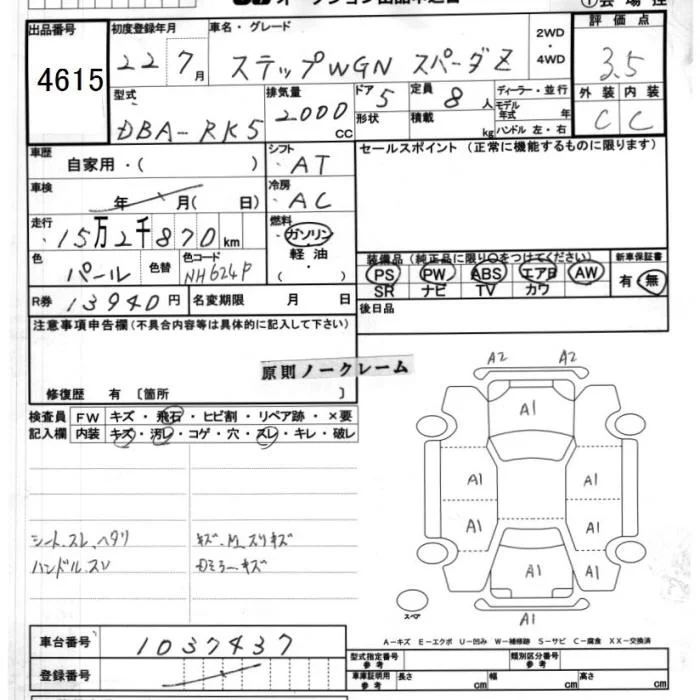 オークション出品申込書
①会場控
出品番号 初度登録年月 車名・グレード 2WD・4WD 評価点
4615 22 7月 ステップWGN スパーダZ 3.5
型式 排気量 ドア 定員 ディーラー・並行 外装 内装
DBA-RK5 2000 CC 5 8人 モデル年式 年 C C
形状 積載 kg ハンドル 左・右
車歴 シフト セールスポイント (正常に機能するものに限ります)
自家用・( ) AT
車検 冷房
年 月( 日) AC
走行 燃料
15万2千870km ガソリン
軽油
・
( )
色 色替 色コード
パール NH624P
装備品 (純正品に限り〇をつけてください) 新車保証書
PS PW ABS エアB AW 有・無
SR ナビ TV カワ
R券 13940円 名変期限 月 日
後日品
注意事項申告欄(不具合内容等は具体的に記入して下さい)
原則ノークレーム
修復歴 有 [箇所 ]
検査員 FW キズ・飛石・ヒビ割・リペア跡・×要
記入欄 内装 キズ・汚レ・コゲ・穴・スレ・キレ・破レ
A2 A2
A1
A1 A1
A1 A1
A1 A1
A1
シート.スレ.ヘタリ キズ.M.スリキズ
ハンドル.スレ ミラー.キズ
スペア
A-キズ E-エクボ U-凹み W-補修跡 S-サビ C-腐食 XX-交換済
車台番号 1037437
型式指定番号 参考 類別区分番号 参考
登録番号
車庫証明用 参考 長さ cm 幅 cm 高さ cm